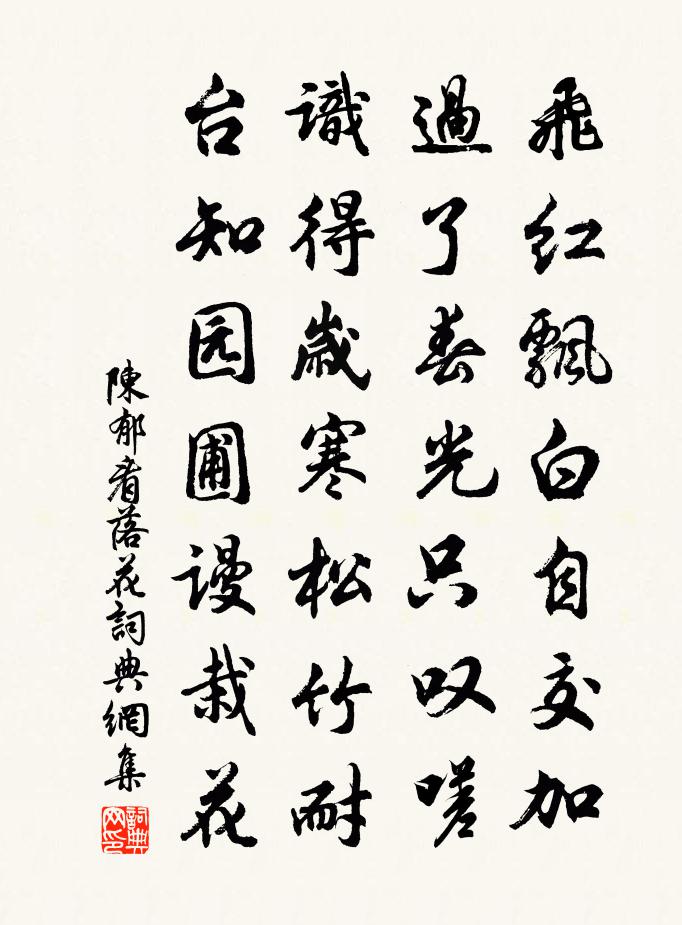 飛紅飄白自交加
過了春光只叹嗟
識得歲寒松竹耐
台知园圃谩栽花
陳郁看落花詞典網集
詞典网印